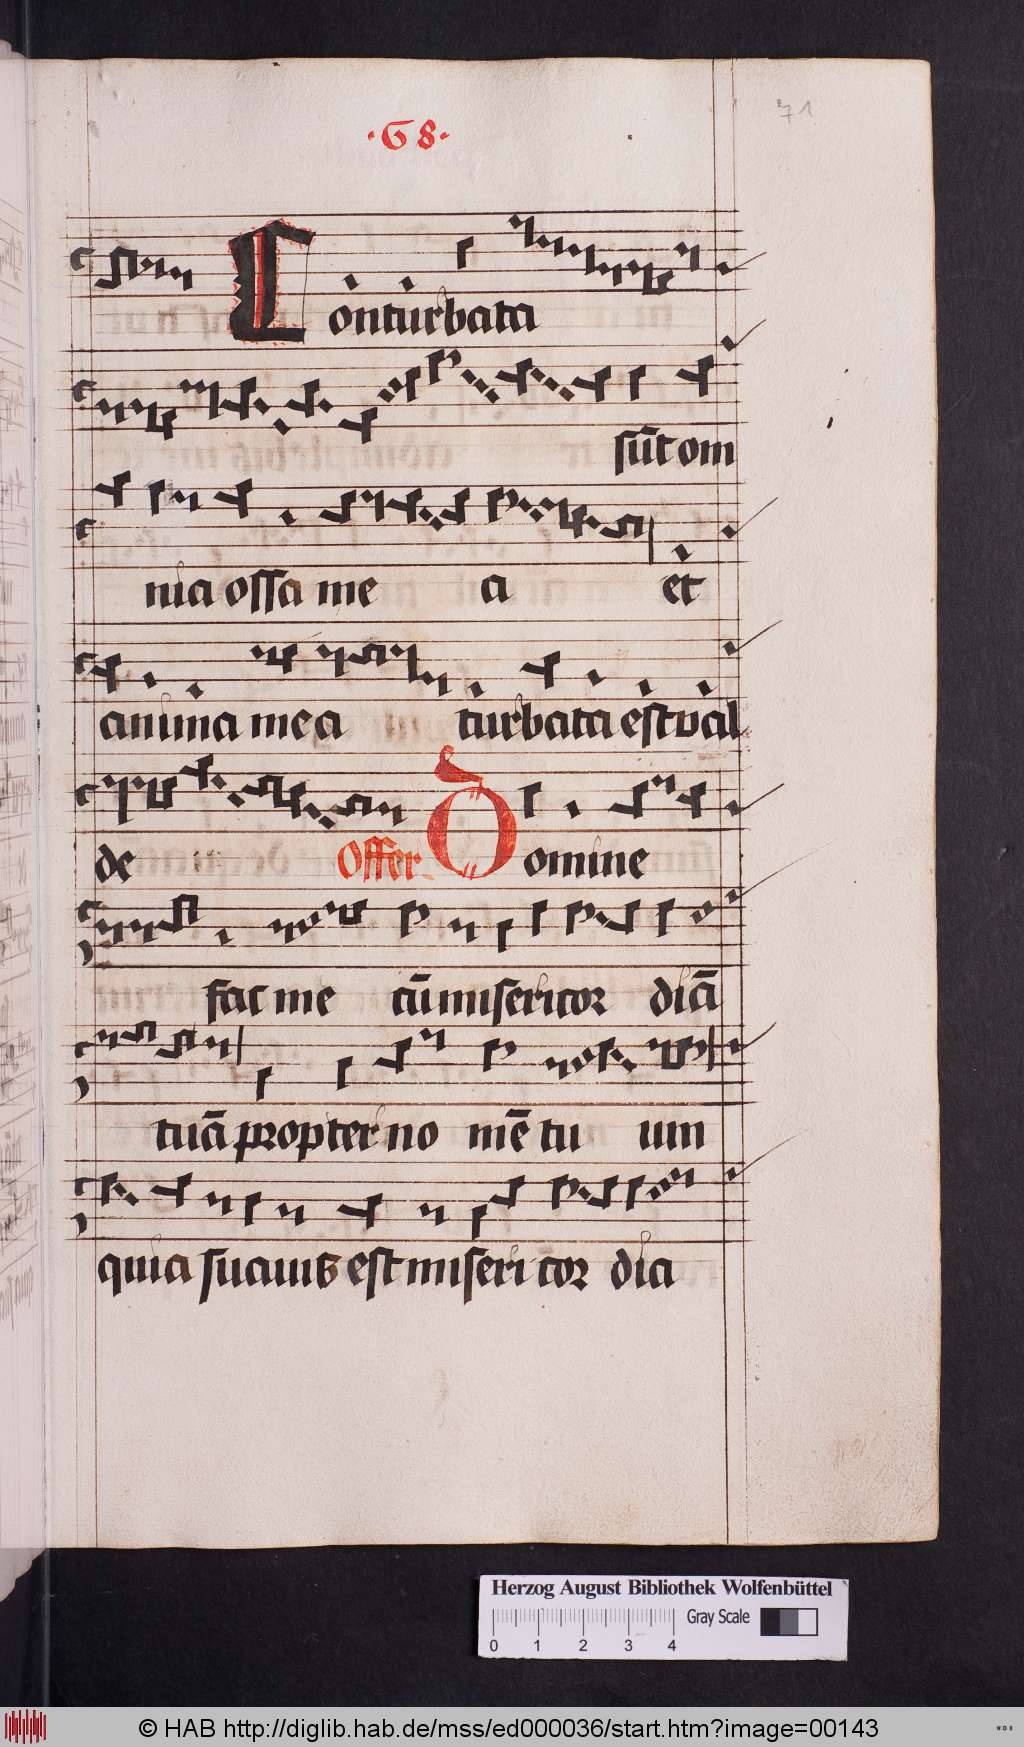 ·68·
71
Conturbata
sūt om
nia ossa me a et
anima mea turbata est val
de Offer Domine
fac me cū misericor diā
tuā propter no mē tu um
quia suauis est miseri cor dia
Herzog August Bibliothek Wolfenbüttel
Gray Scale
0 1 2 3 4
© HAB http://diglib.hab.de/mss/ed000036/start.htm?image=00143